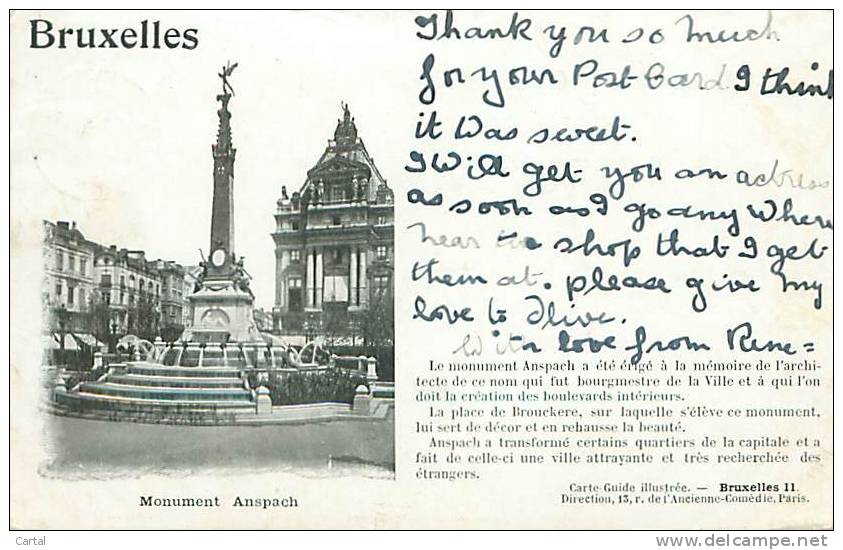 Bruxelles
Thank you so much
for your Post Card I think
it was sweet.
I Will get you an actress
as soon as I go any Where
near the shop that I get
them at. please give my
love to Olive.
With love from Rene =
Le monument Anspach a été érigé à la mémoire de l'archi-
tecte de ce nom qui fut bourgmestre de la Ville et à qui l'on
doit la création des boulevards intérieurs.
La place de Brouckere, sur laquelle s'élève ce monument,
lui sert de décor et en rehausse la beauté.
Anspach a transformé certains quartiers de la capitale et a
fait de celle-ci une ville attrayante et très recherchée des
étrangers.
Carte-Guide illustrée. — Bruxelles 11.
Direction, 13, r. de l'Ancienne-Comédie, Paris.
Monument Anspach
Cartal
delcampe.net